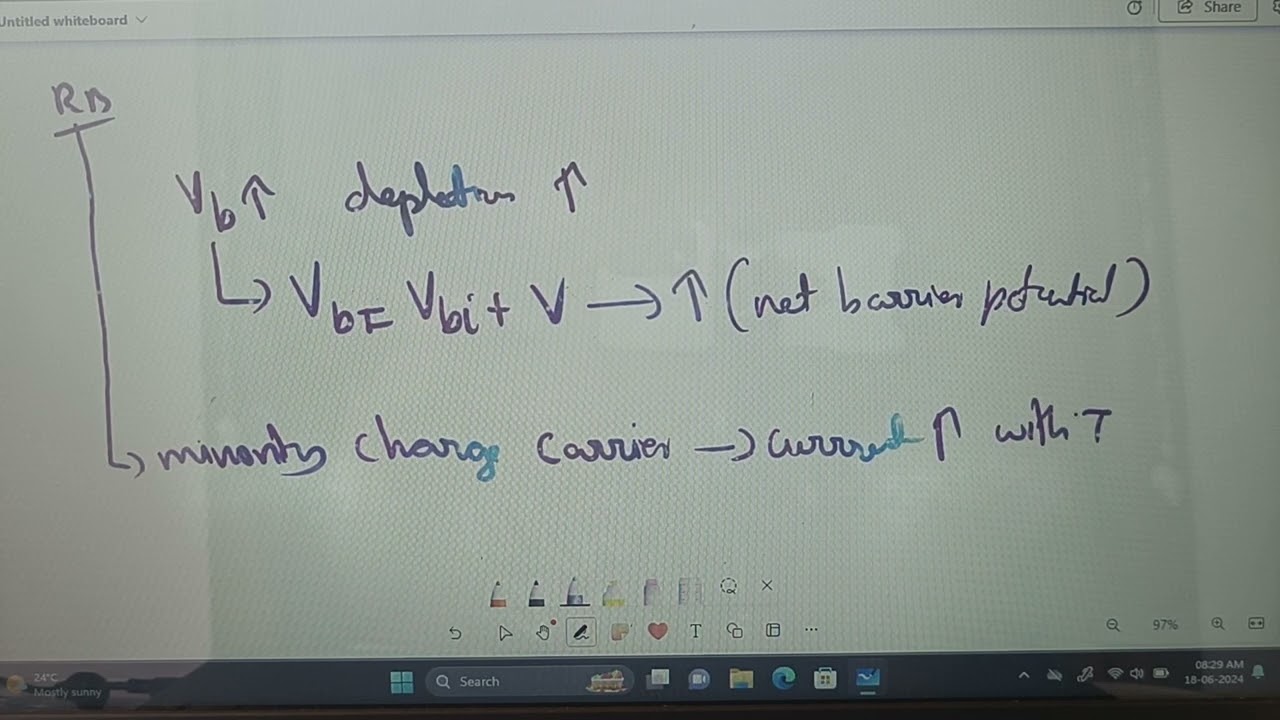 Untitled whiteboard
Share
RB
Vb↑ depletion ↑
↳ Vb = Vbi + V → ↑ (net barrier potential)
↳ minority charge carrier → current ↑ with T
97%
24°C
Mostly sunny
Search
08:29 AM
18-06-2024